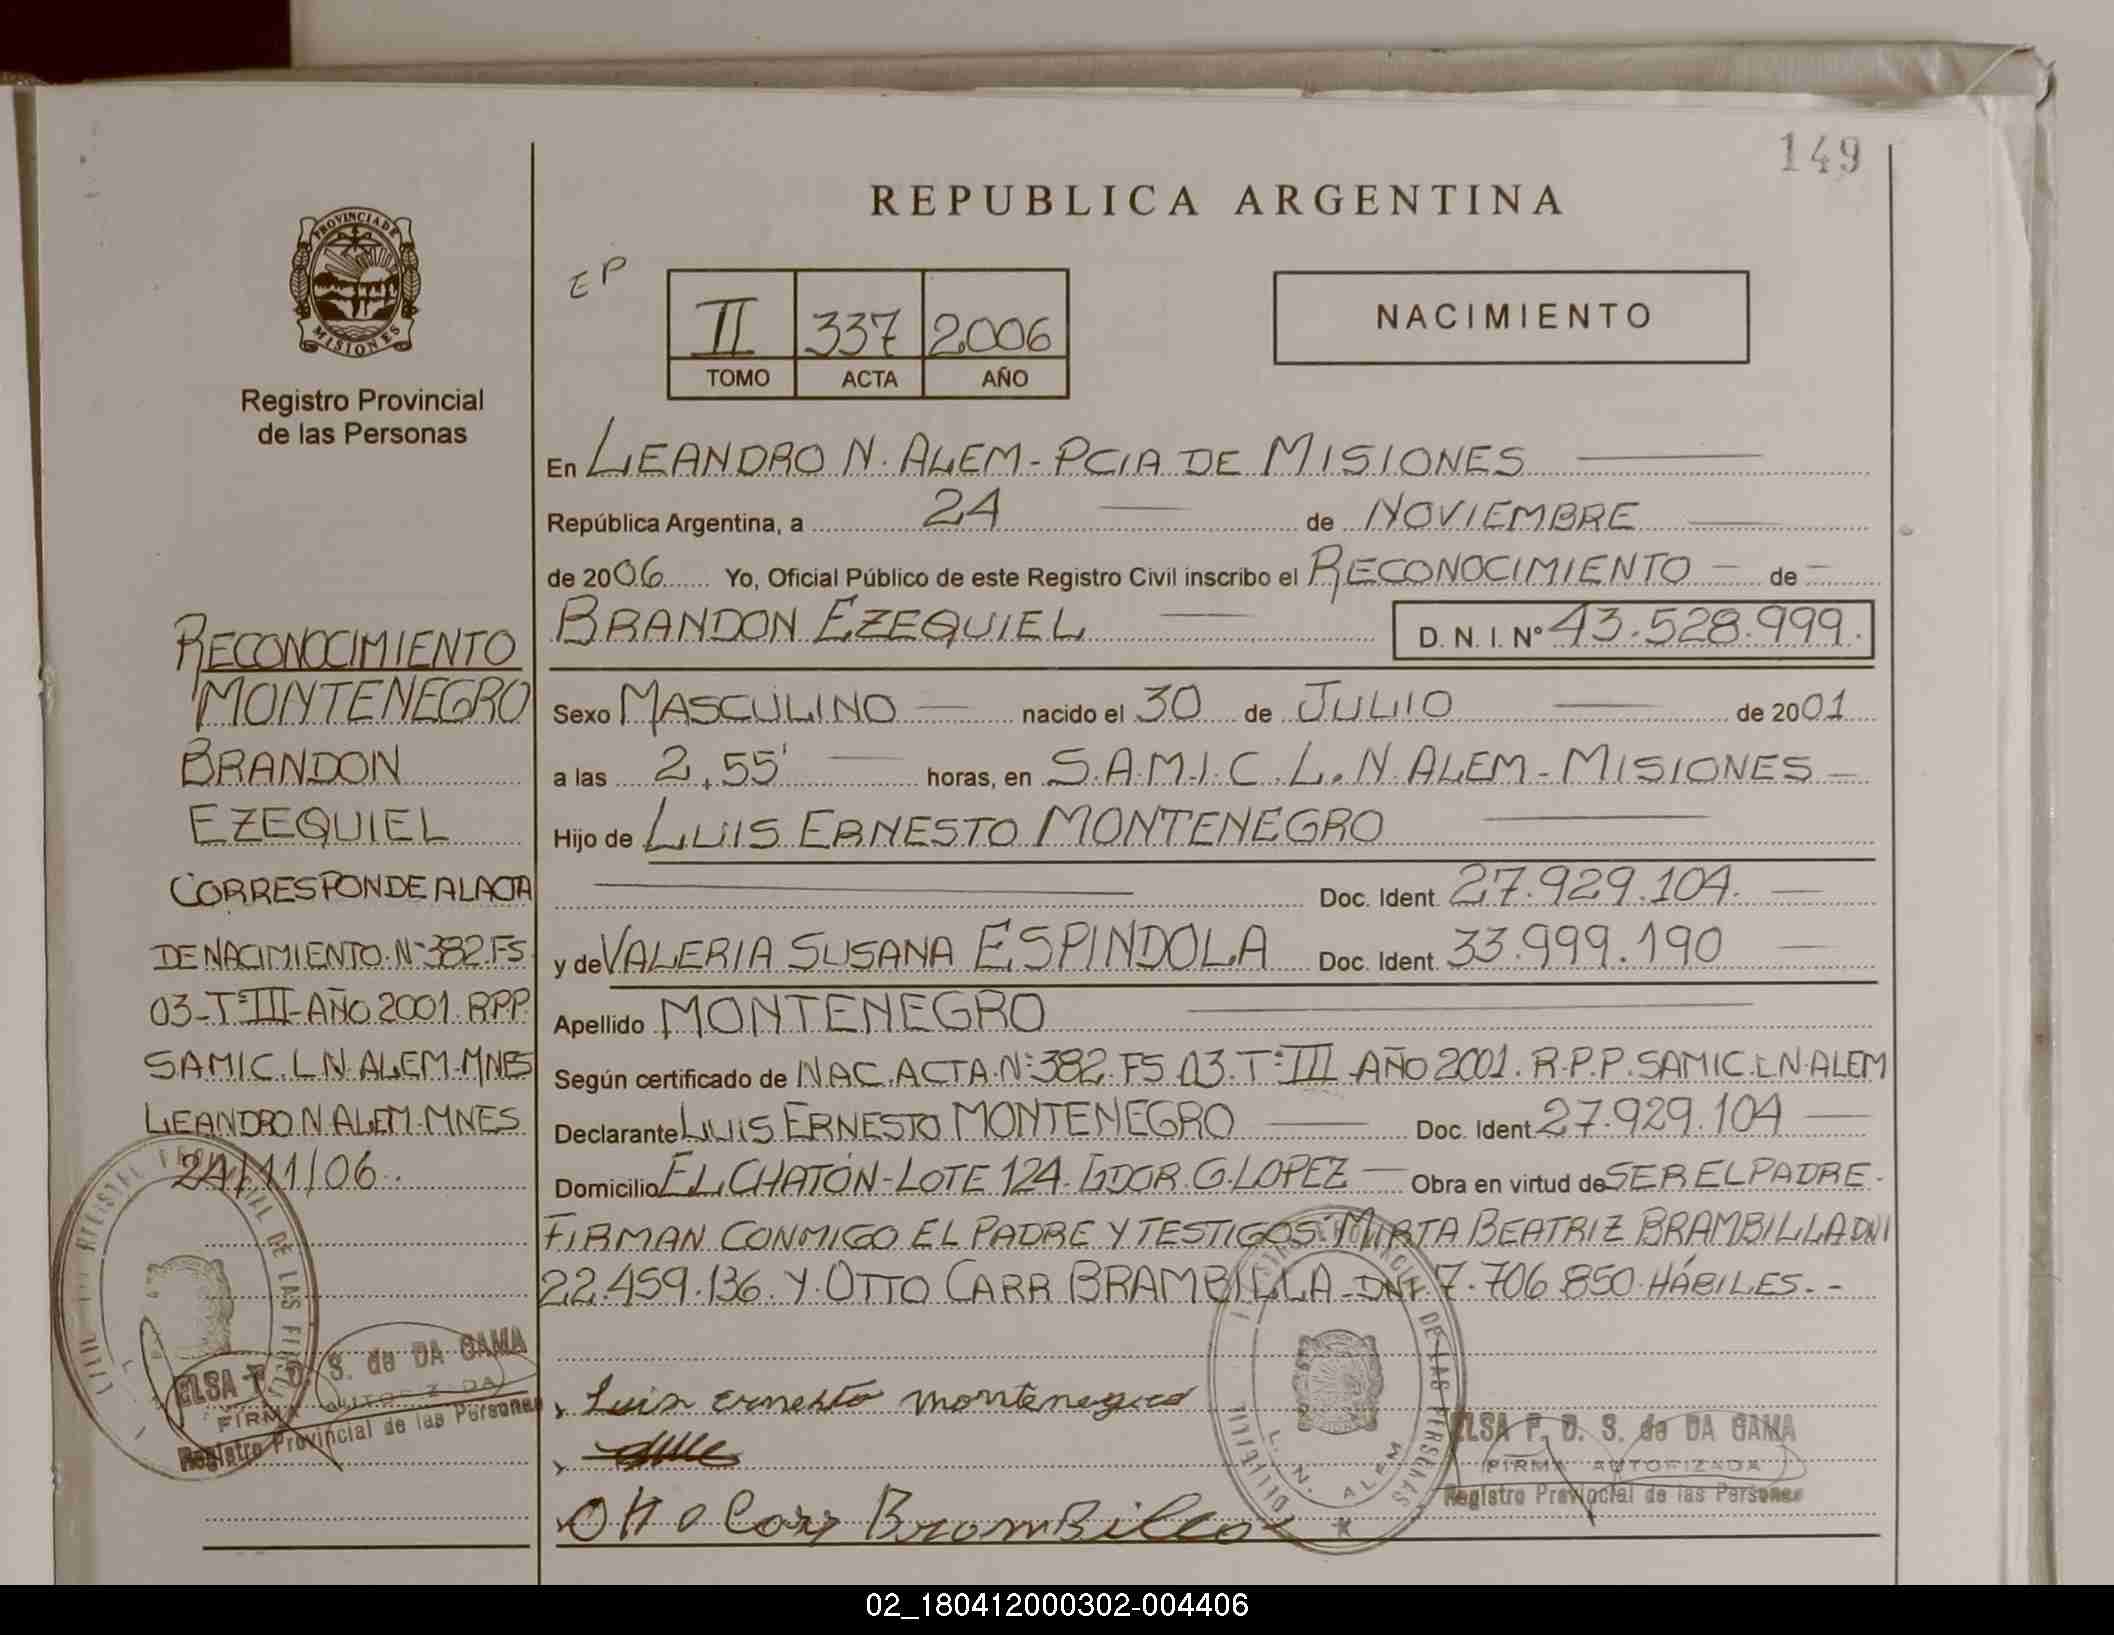 149
REPUBLICA ARGENTINA
PROVINCIA DE
MISIONES
Registro Provincial
de las Personas
EP
II 337 2006
TOMO ACTA AÑO
NACIMIENTO
En LEANDRO N. ALEM - PCIA DE MISIONES
República Argentina, a 24 de NOVIEMBRE
de 2006 Yo, Oficial Público de este Registro Civil inscribo el RECONOCIMIENTO de
BRANDON EZEQUIEL D. N. I. Nº 43.528.999.
Sexo MASCULINO nacido el 30 de JULIO de 2001
a las 2,55' horas, en S.A.M.I.C. L.N. ALEM - MISIONES
Hijo de LUIS ERNESTO MONTENEGRO
Doc. Ident. 27.929.104.
y de VALERIA SUSANA ESPINDOLA Doc. Ident. 33.999.190
Apellido MONTENEGRO
Según certificado de NAC. ACTA Nº 382. FS 03. Tº III AÑO 2001. R.P.P. SAMIC. L N ALEM
Declarante LUIS ERNESTO MONTENEGRO Doc. Ident. 27.929.104
Domicilio EL CHATÓN - LOTE 124. GDOR. G. LOPEZ Obra en virtud de SER EL PADRE.
FIRMAN CONMIGO EL PADRE Y TESTIGOS: MIRTA BEATRIZ BRAMBILLA DNI
22.459.136. Y OTTO CARR BRAMBILLA - DNI 7.706.850 HÁBILES. -
Luis Ernesto Montenegro
Otto Carr Brambilla
L. N. ALEM
ELSA P. D. S. de DA GAMA
FIRMA AUTORIZADA
Registro Provincial de las Personas
RECONOCIMIENTO
MONTENEGRO
BRANDON
EZEQUIEL
CORRESPONDE AL ACTA
DE NACIMIENTO. Nº 382. FS
03 - Tº III - AÑO 2001. R.P.P.
SAMIC. L N ALEM - MNES
LEANDRO N ALEM - MNES
24/11/06.
ELSA P. D. S. de DA GAMA
FIRMA AUTORIZADA
Registro Provincial de las Personas
02_180412000302-004406